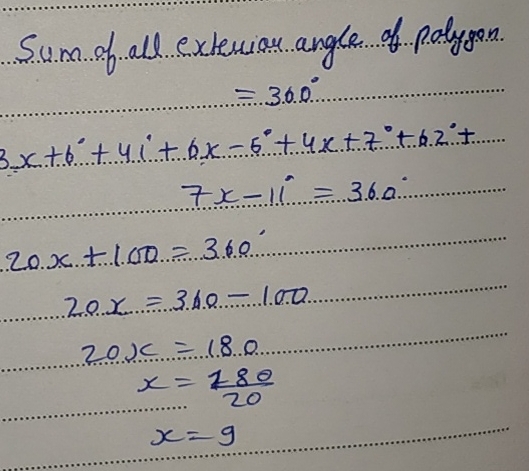 Sum of all exterior angle of polygon.
= 360°
3x+6°+41°+6x-5°+4x+7°+62°+
7x-11° = 360°
20x+100 = 360°
20x = 360-100
20x = 180
x = 180/20
x = 9